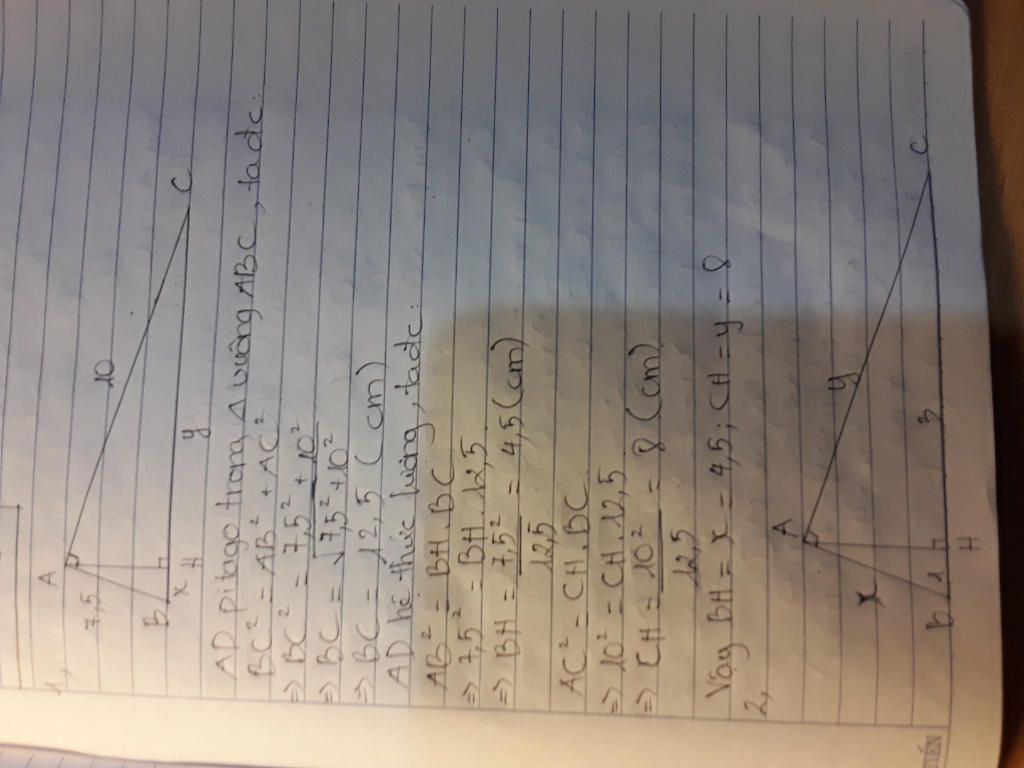 1,
A
7,5
10
B
x
H
y
C
AD Pitago trong Δ vuông ABC, tađc:
BC² = AB² + AC²
=> BC² = 7,5² + 10²
=> BC = √7,5² + 10²
=> BC = 12,5 (cm)
AD hệ thức lượng, tađc:
AB² = BH.BC
=> 7,5² = BH.12,5
=> BH = 7,5² / 12,5 = 4,5 (cm)
AC² = CH.BC
=> 10² = CH.12,5
=> CH = 10² / 12,5 = 8 (cm)
Vậy BH = x = 4,5; CH = y = 8
2,
A
x
y
B
1
H
3
C
TIẾN